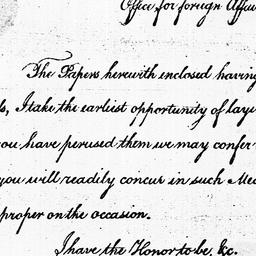 Office for foreign Affai
The Papers herewith enclosed having
ls, I take the earliest opportunity of layi
you have perused them we may confer
you will readily concur in such Mea
proper on the occasion.
I have the Honor to be, &c.